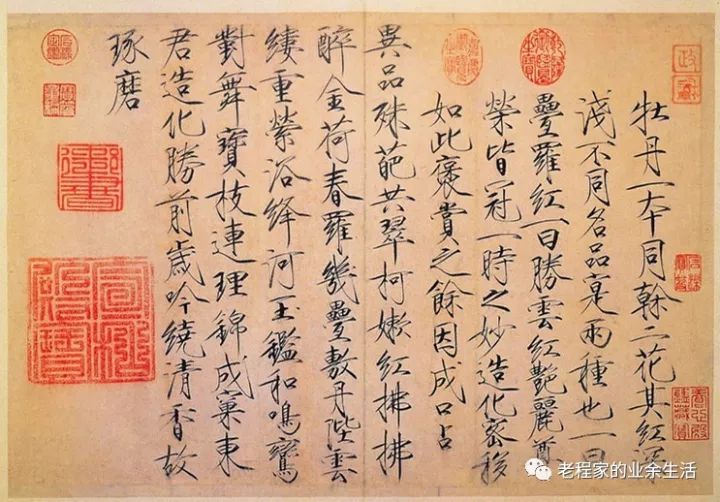 牡丹一本同榦二花其紅深
淺不同名品寔兩種也一曰
疊羅紅一曰勝雲紅艷麗尊
榮皆冠一時之妙造化密移
如此褒賞之餘因成口占
異品殊葩共翠柯嫩紅拂拂
醉金荷春羅幾疊敷丹陛雲
縷重縈浴絳河玉鑑和鳴鸞
對舞寶枝連理錦成窠東
君造化勝前歲吟繞清香故
琢磨
老程家的业余生活